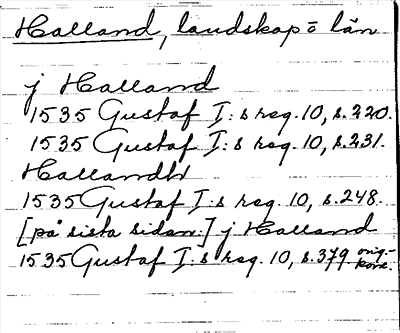 Halland, landskap o län
j Halland
1535 Gustaf I:s reg. 10, s. 220.
1535 Gustaf I:s reg. 10, s. 231.
Hallandh
1535 Gustaf I:s reg. 10, s. 248.
[på sista sidan:] j Halland
1535 Gustaf I:s reg. 10, s. 379 orig.-konc.